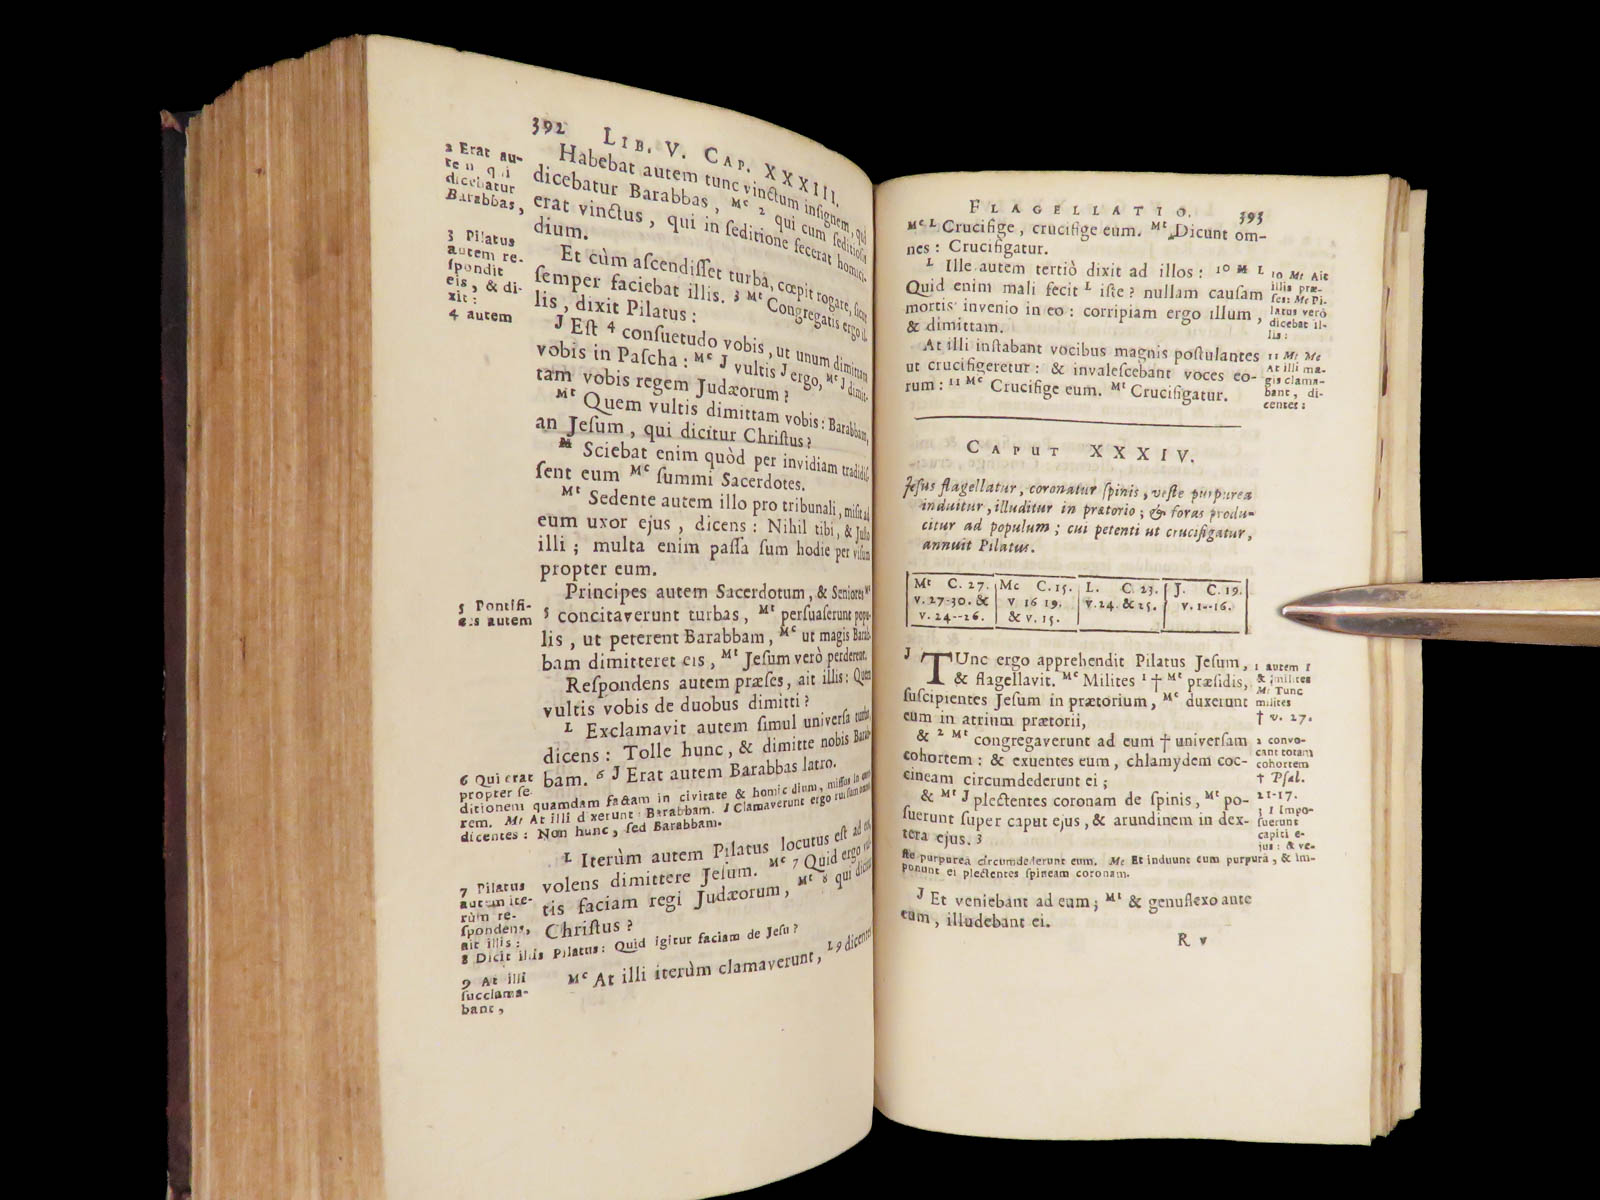 392 LIB. V. CAP. XXXIII.
2 Erat au-
te n q i
dicebatur
Barabbas,
3 Pilatus
autem re-
ſpondit
eis, & di-
xit:
4 autem
Habebat autem tunc vinctum inſignem, qui
dicebatur Barabbas, Mc 2 qui cum ſeditioſis
erat vinctus, qui in ſeditione fecerat homici-
dium.
Et cùm aſcendiſſet turba, cœpit rogare, ſicut
ſemper faciebat illis. 3 Mt Congregatis ergo il-
lis, dixit Pilatus:
J Eſt 4 conſuetudo vobis, ut unum dimittam
vobis in Paſcha: Mc J vultis J ergo, Mc J dimit-
tam vobis regem Judæorum?
Mt Quem vultis dimittam vobis: Barabbam,
an Jeſum, qui dicitur Chriſtus?
M Sciebat enim quòd per invidiam tradidiſ-
ſent eum Mc ſummi Sacerdotes.
Mt Sedente autem illo pro tribunali, miſit ad
eum uxor ejus, dicens: Nihil tibi, & Juſto
illi; multa enim paſſa ſum hodie per viſum
propter eum.
5 Pontifi-
ces autem
Principes autem Sacerdotum, & Seniores Mt
5 concitaverunt turbas, Mt perſuaſerunt popu-
lis, ut peterent Barabbam, Mc ut magis Barab-
bam dimitteret eis, Mt Jeſum verò perderent.
Reſpondens autem præſes, ait illis: Quem
vultis vobis de duobus dimitti?
L Exclamavit autem ſimul univerſa turba,
dicens: Tolle hunc, & dimitte nobis Barab-
bam. 6 J Erat autem Barabbas latro.
6 Qui erat
propter ſe-
ditionem quamdam factam in civitate & homicidium, miſſus in carce-
rem. Mt At illi dixerunt: Barabbam. J Clamaverunt ergo rurſum omnes
dicentes: Non hunc, ſed Barabbam.
L Iterùm autem Pilatus locutus eſt ad eos,
volens dimittere Jeſum. Mc 7 Quid ergo vul-
tis faciam regi Judæorum, Mt 8 qui dicitur
Chriſtus?
7 Pilatus
autem ite-
rùm re-
ſpondens,
ait illis:
8 Dicit illis Pilatus: Quid igitur faciam de Jeſu?
Mc At illi iterùm clamaverunt, L 9 dicentes
9 At illi
ſucclama-
bant,
FLAGELLATIO. 393
Mc L Crucifige, crucifige eum. Mt Dicunt om-
nes: Crucifigatur.
L Ille autem tertiò dixit ad illos: 10 M L
Quid enim mali fecit L iſte? nullam cauſam
mortis invenio in eo: corripiam ergo illum,
& dimittam.
10 Mt Ait
illis præ-
ſes: Mc Pi-
latus verò
dicebat il-
lis:
At illi inſtabant vocibus magnis poſtulantes
ut crucifigeretur: & invaleſcebant voces eo-
rum: 11 Mc Crucifige eum. Mt Crucifigatur.
11 Mt Mc
At illi ma-
gis clama-
bant, di-
centes:
CAPUT XXXIV.
Jeſus flagellatur, coronatur ſpinis, veſte purpurea
induitur, illuditur in prætorio; & foras produ-
citur ad populum; cui petenti ut crucifigatur,
annuit Pilatus.
Mt C. 27. Mc C. 15. L. C. 23. J. C. 19.
v. 27-30. & v 16 19. v. 24. & 25. v. 1--16.
v. 24--26. & v. 15.
J TUnc ergo apprehendit Pilatus Jeſum,
& flagellavit. Mc Milites 1 † Mt præſidis,
ſuſcipientes Jeſum in prætorium, Mc duxerunt
eum in atrium prætorii,
1 autem J
& milites
Mt Tunc
milites
† v. 27.
& 2 Mt congregaverunt ad eum † univerſam
cohortem: & exuentes eum, chlamydem coc-
cineam circumdederunt ei;
2 convo-
cant totam
cohortem
† Pſal.
21-17.
& Mt J plectentes coronam de ſpinis, Mt po-
ſuerunt ſuper caput ejus, & arundinem in dex-
tera ejus. 3
3 J Impo-
ſuerunt
capiti e-
jus: & ve-
ſte purpurea circumdederunt eum. Mc Et induunt eum purpurâ, & im-
ponunt ei plectentes ſpineam coronam.
J Et veniebant ad eum; Mt & genuflexo ante
eum, illudebant ei.
R v